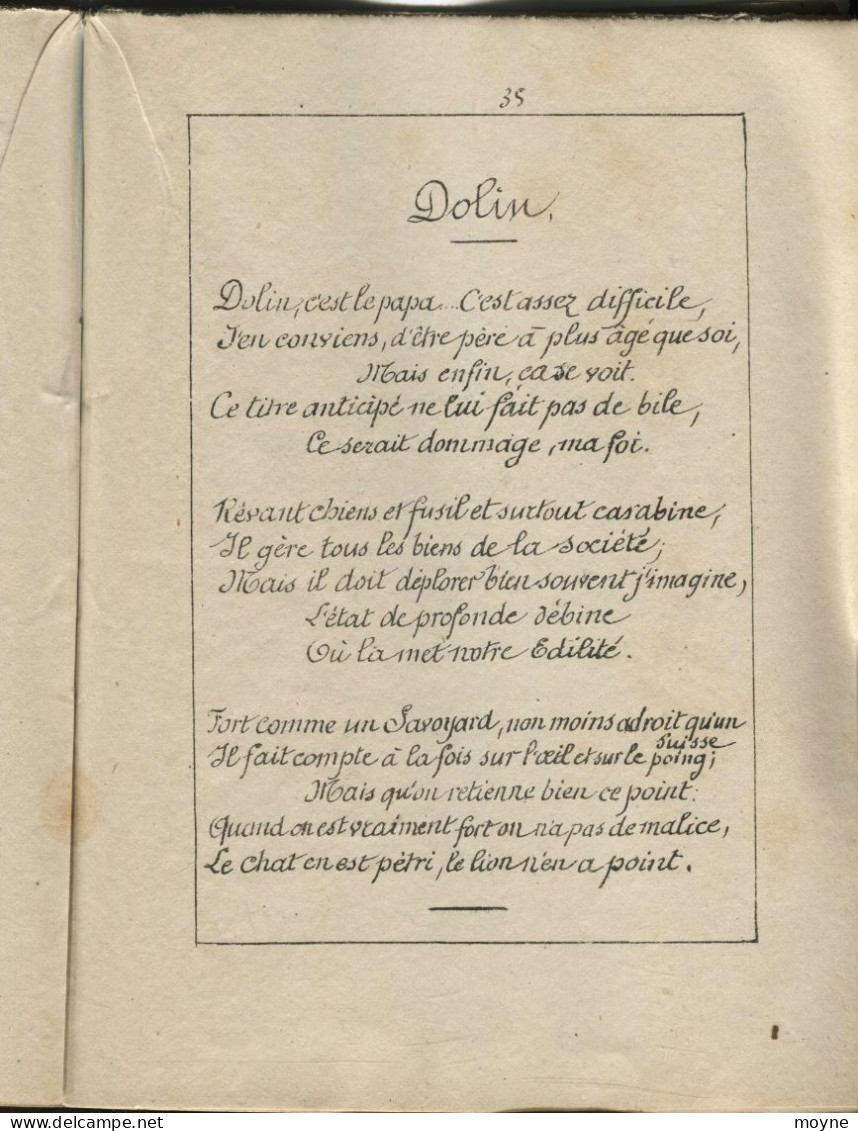 35
Dolin.
Dolin, c'est le papa... C'est assez difficile,
J'en conviens, d'être père à plus âgé que soi,
Mais enfin, ça se voit.
Ce titre anticipé ne lui fait pas de bile,
Ce serait dommage, ma foi.
Rêvant chiens et fusil et surtout carabine,
Il gère tous les biens de la société;
Mais il doit déplorer bien souvent j'imagine,
L'état de profonde débine
Où la met notre Edilité.
Fort comme un Savoyard, non moins adroit qu'un
suisse
Il fait compte à la fois sur l'œil et sur le poing;
Mais qu'on retienne bien ce point:
Quand on est vraiment fort on n'a pas de malice,
Le chat en est pétri, le lion n'en a point.
moyne